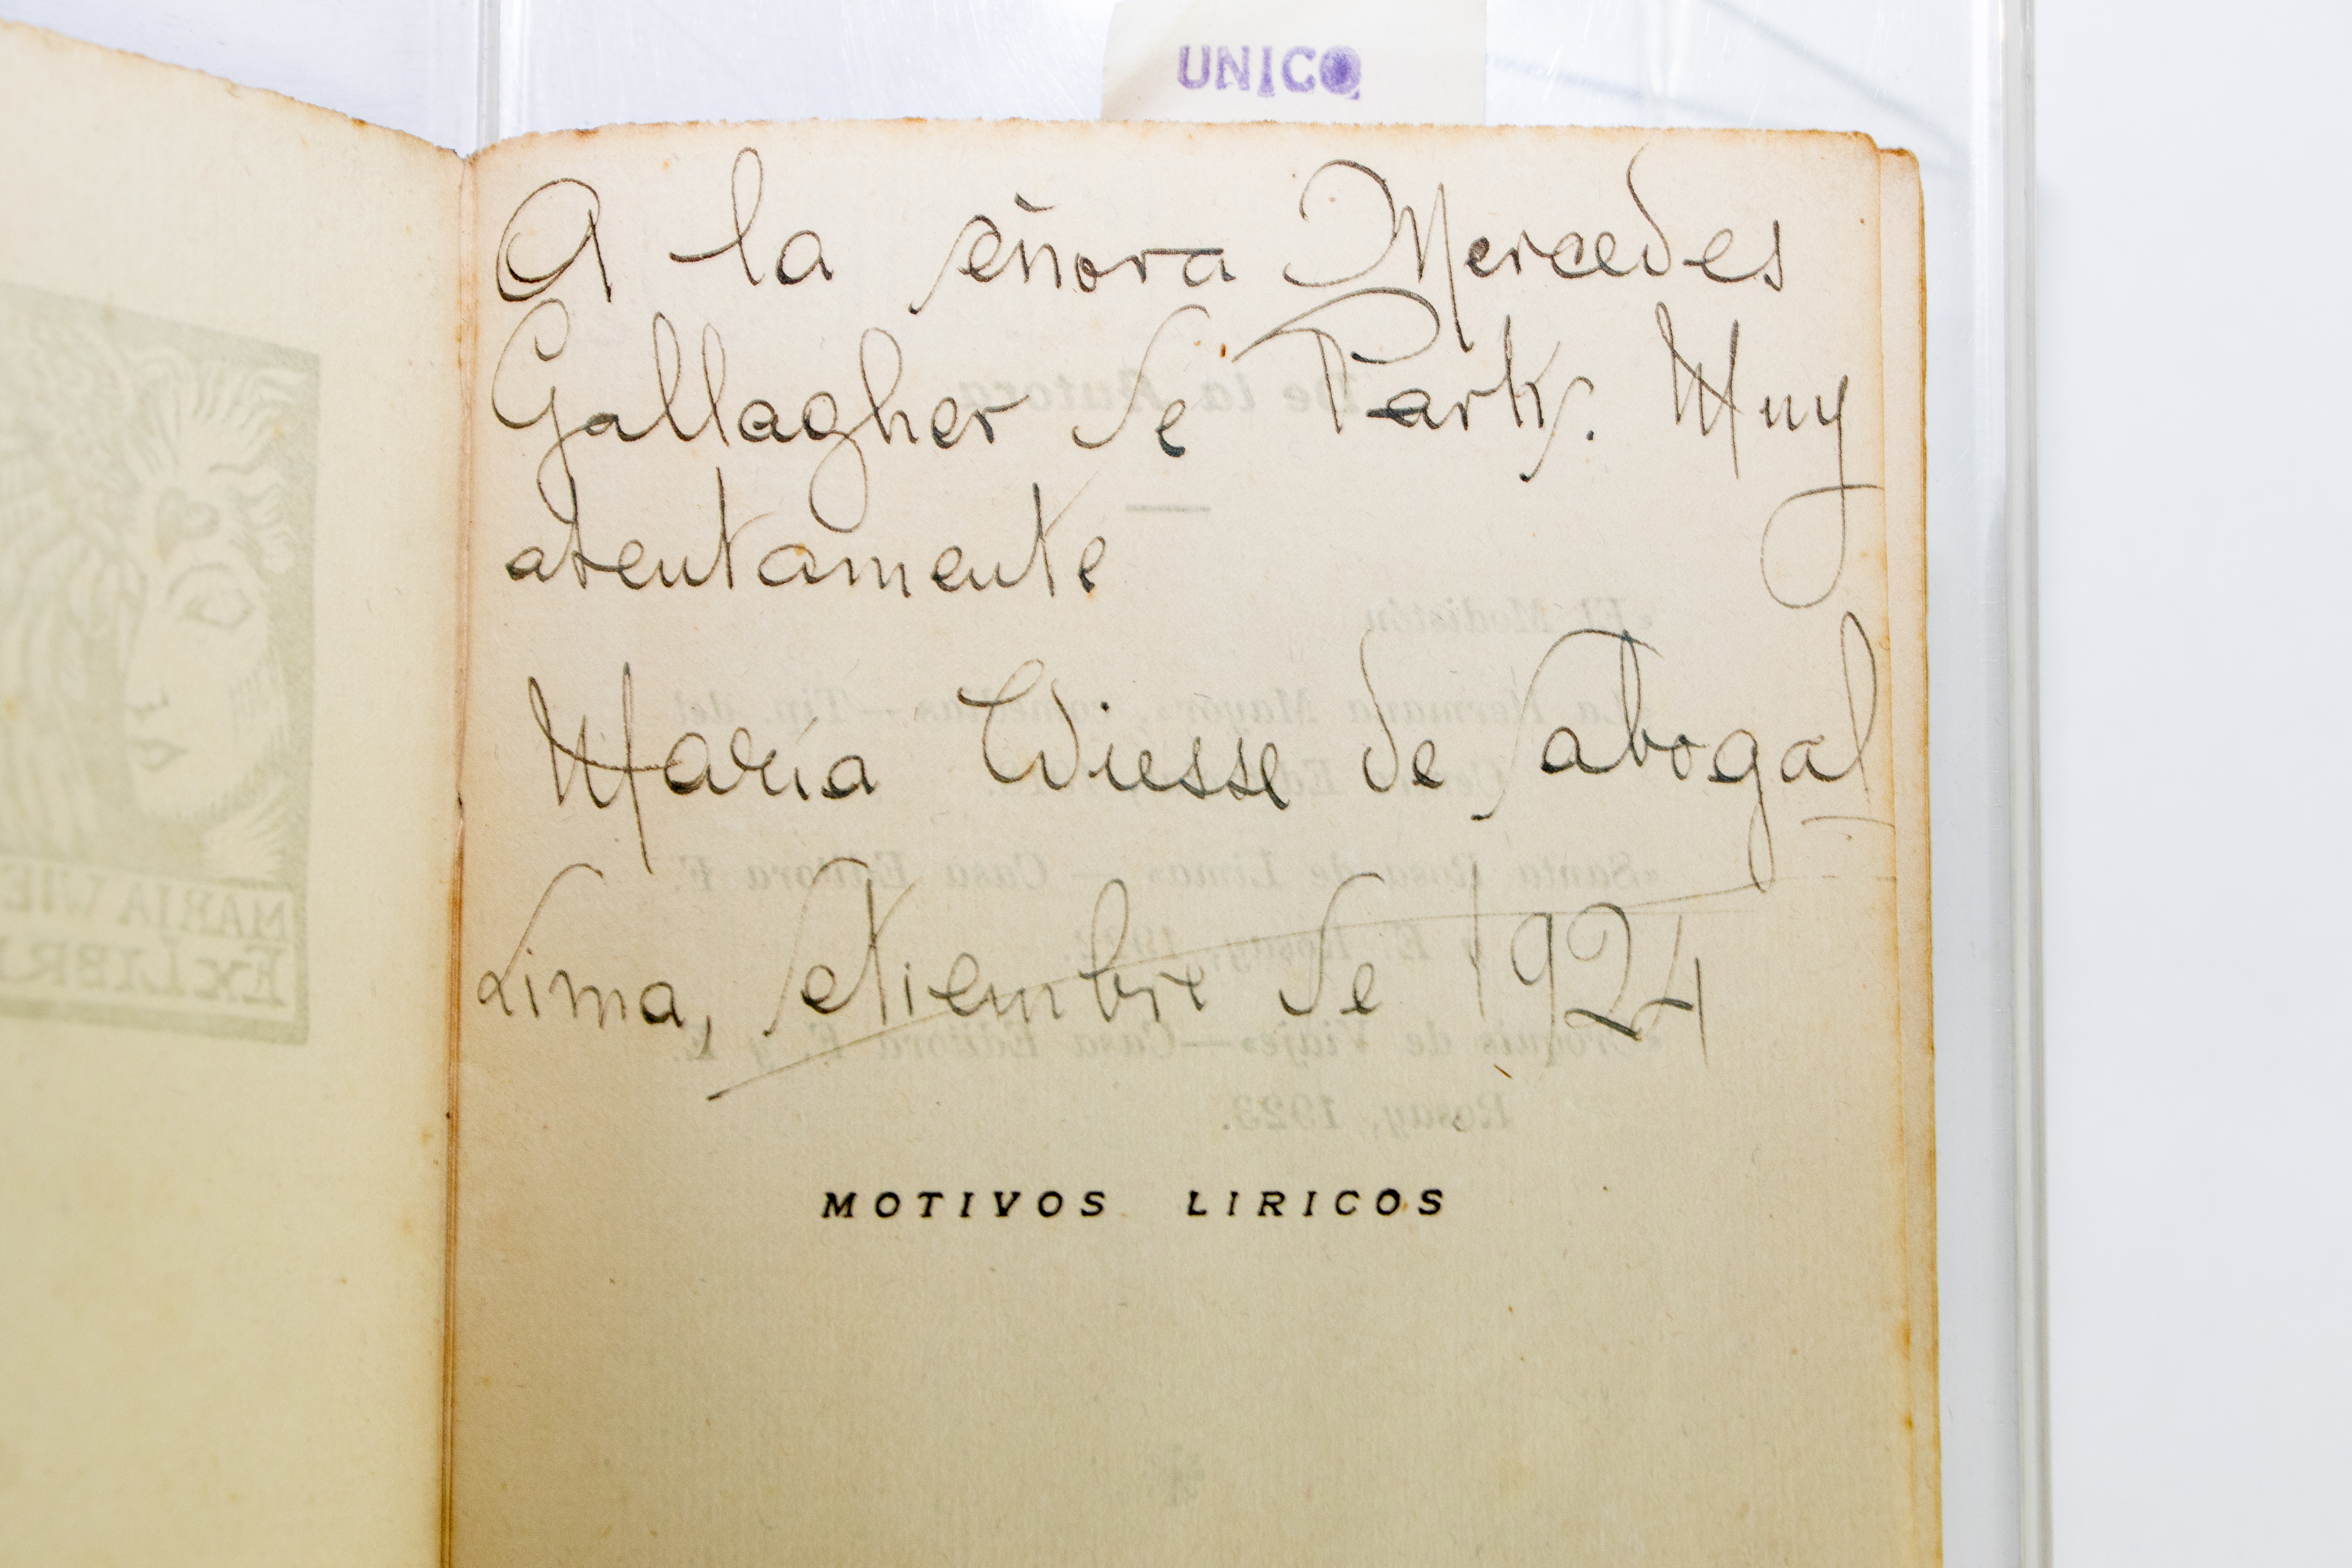 UNICO
A la señora Mercedes
Gallagher de Parks. Muy
atentamente
María Wiesse de Sabogal
Lima, setiembre de 1924
MOTIVOS LIRICOS
De la Autora
«El Modistón
«La Hermana Mayor», comedias.—Tip. del
«Santa Rosa de Lima» — Casa Editora F.
y E. Rosay, 1922.
«Croquis de Viaje»—Casa Editora F. y E.
Rosay, 1923.
MARIA WIE
EX LIBRI